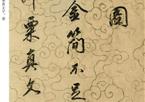 圖
金簡不足
粟真文